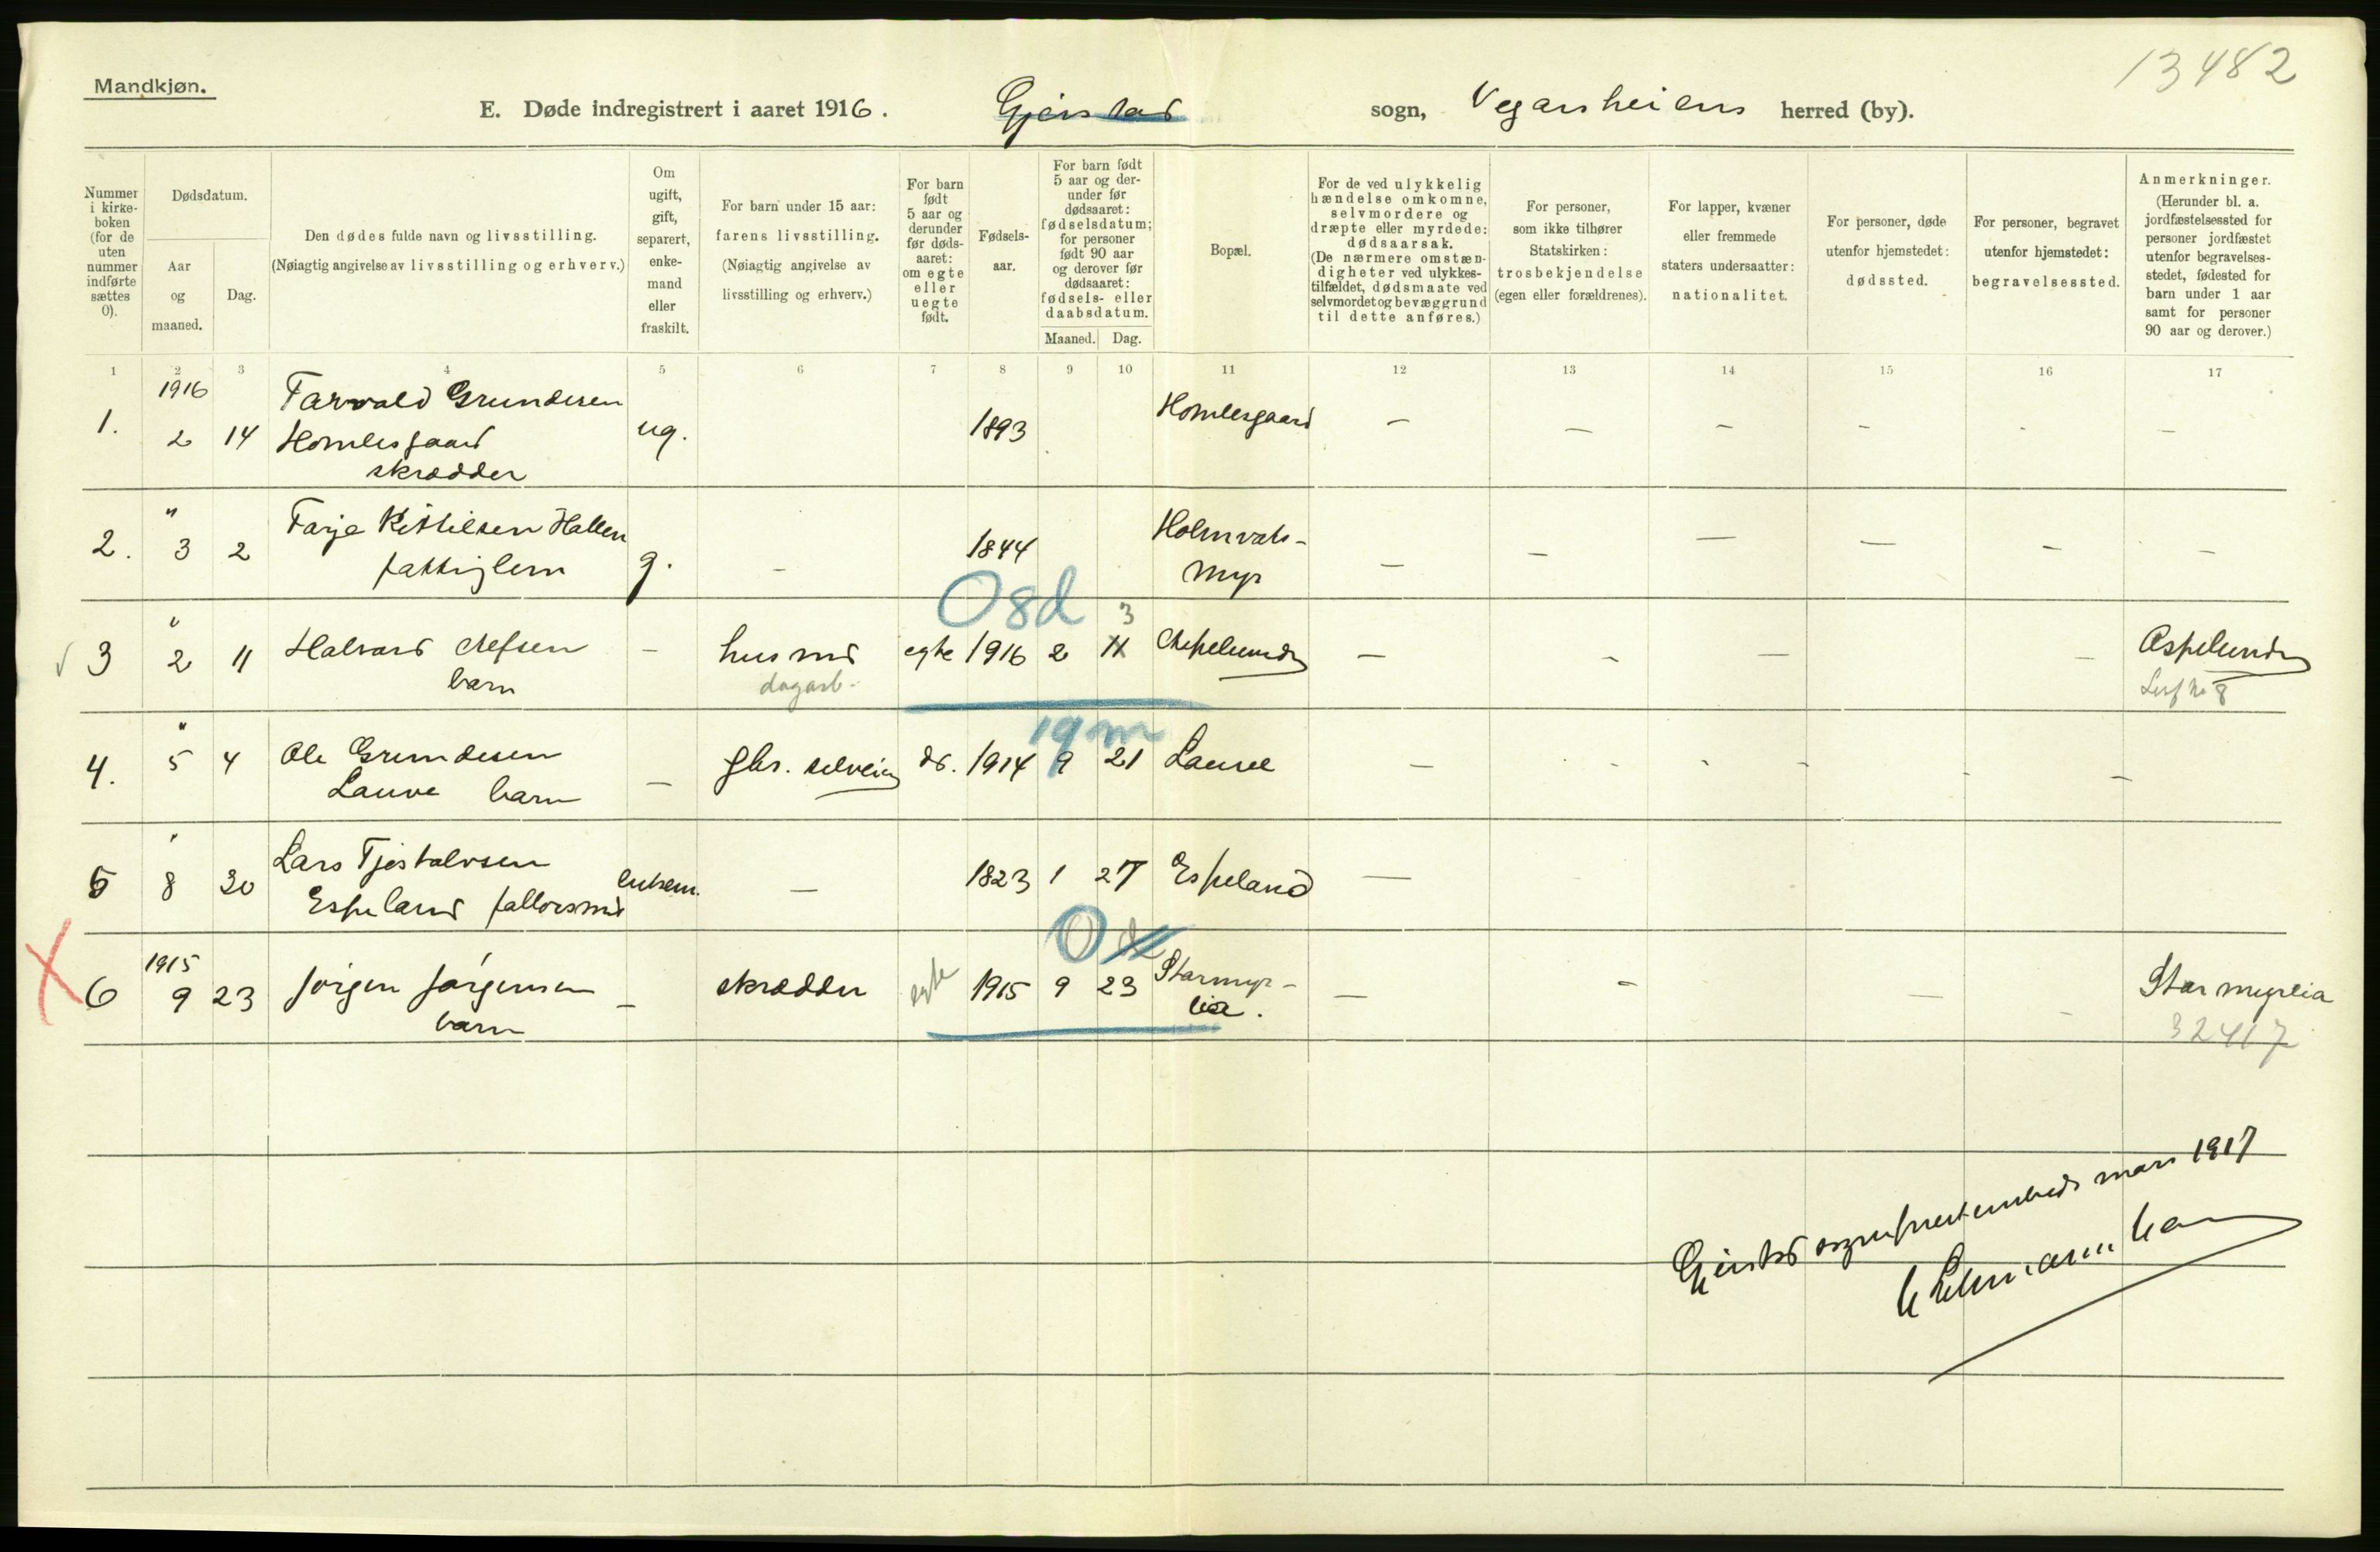 13482
Mandkjøn.
E. Døde indregistrert i aaret 1916. Gjerstad sogn, Vegarsheiens herred (by).
Nummer i kirke-boken (for de uten nummer indførte sættes 0).
Dødsdatum.
Aar og maaned.
Dag.
Den dødes fulde navn og livsstilling.
(Nøiagtig angivelse av livsstilling og erhverv.)
Om ugift, gift, separert, enke-mand eller fraskilt.
For barn under 15 aar:
farens livsstilling.
(Nøiagtig angivelse av livsstilling og erhverv.)
For barn født 5 aar og derunder før døds-aaret: om egte eller uegte født.
Fødsels-aar.
For barn født 5 aar og der-under før dødsaaret: fødselsdatum; for personer født 90 aar og derover før dødsaaret: fødsels- eller daabsdatum.
Maaned. Dag.
Bopæl.
For de ved ulykkelig hændelse omkomne, selvmordere og dræpte eller myrdede: dødsaarsak.
(De nærmere omstæn-digheter ved ulykkes-tilfældet, dødsmaate ved selvmordet og bevæggrund til dette anføres.)
For personer, som ikke tilhører Statskirken: trosbekjendelse (egen eller forældrenes).
For lapper, kvæner eller fremmede staters undersaatter: nationalitet.
For personer, døde utenfor hjemstedet: dødssted.
For personer, begravet utenfor hjemstedet: begravelsessted.
Anmerkninger.
(Herunder bl. a. jordfæstelsessted for personer jordfæstet utenfor begravelses-stedet, fødested for barn under 1 aar samt for personer 90 aar og derover.)
1 2 3 4 5 6 7 8 9 10 11 12 13 14 15 16 17
1916
1. 2 14 Tarvald Grundesen Homlesgaard skrædder ug. 1893 Homlesgaard — — — — - —
2. " 3 2 Tarje Kittilsen Hallen fattiglem g. — 1844 Holmvats-myr — — — — — -
08d
3
3 " 2 11 Halvard Alefsen barn — husmd egte 1916 2 11 Aspelund — - — — Aspelund
dagarb.
19m
4. " 5 4 Ole Grundesen Lauve barn — gbr. selveier do. 1914 9 21 Lauve — - - - - —
5 " 8 30 Lars Tjøstolvsen Espeland enkem. — 1823 1 27 Espeland —
0d
1915
6 9 23 Jørgen Jørgensen barn — skrædder egte 1915 9 23 Starmyr-lia. — - — - Starmyrlia
32417
Gjerstad sogneprestembede mars 1917